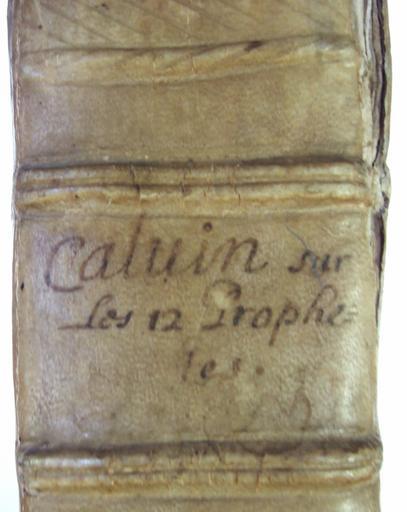 Caluin sur
Les 12 Prophe=
tes.